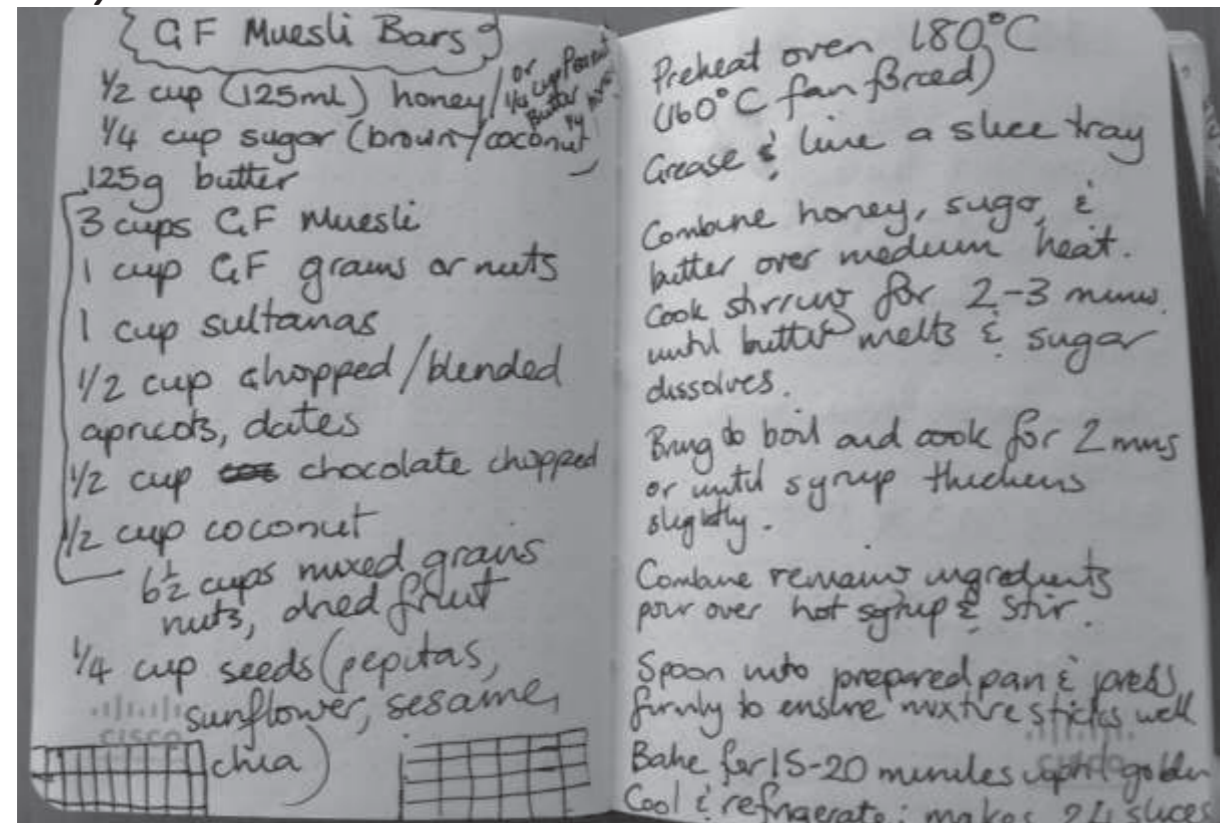 GF Muesli Bars
1/2 cup (125ml) honey/ or 1/4 cup Peanut Butter 1/4
1/4 cup sugar (brown/coconut)
125g butter
3 cups GF Muesli
1 cup GF grains or nuts
1 cup sultanas
1/2 cup chopped/blended
apricots, dates
1/2 cup chocolate chopped
1/2 cup coconut
6 1/2 cups mixed grains
nuts, dried fruit
1/4 cup seeds (pepitas,
sunflower, sesame,
cisco
chia)
Preheat oven 180°C
(160°C fan forced)
Grease & line a slice tray
Combine honey, sugar, &
butter over medium heat.
Cook stirring for 2-3 mins
until butter melts & sugar
dissolves.
Bring to boil and cook for 2 mins
or until syrup thickens
slightly.
Combine remaining ingredients
pour over hot syrup & stir.
Spoon into prepared pan & press
firmly to ensure mixture sticks well
Bake for 15-20 minutes until golden
Cool & refrigerate: makes 24 slices